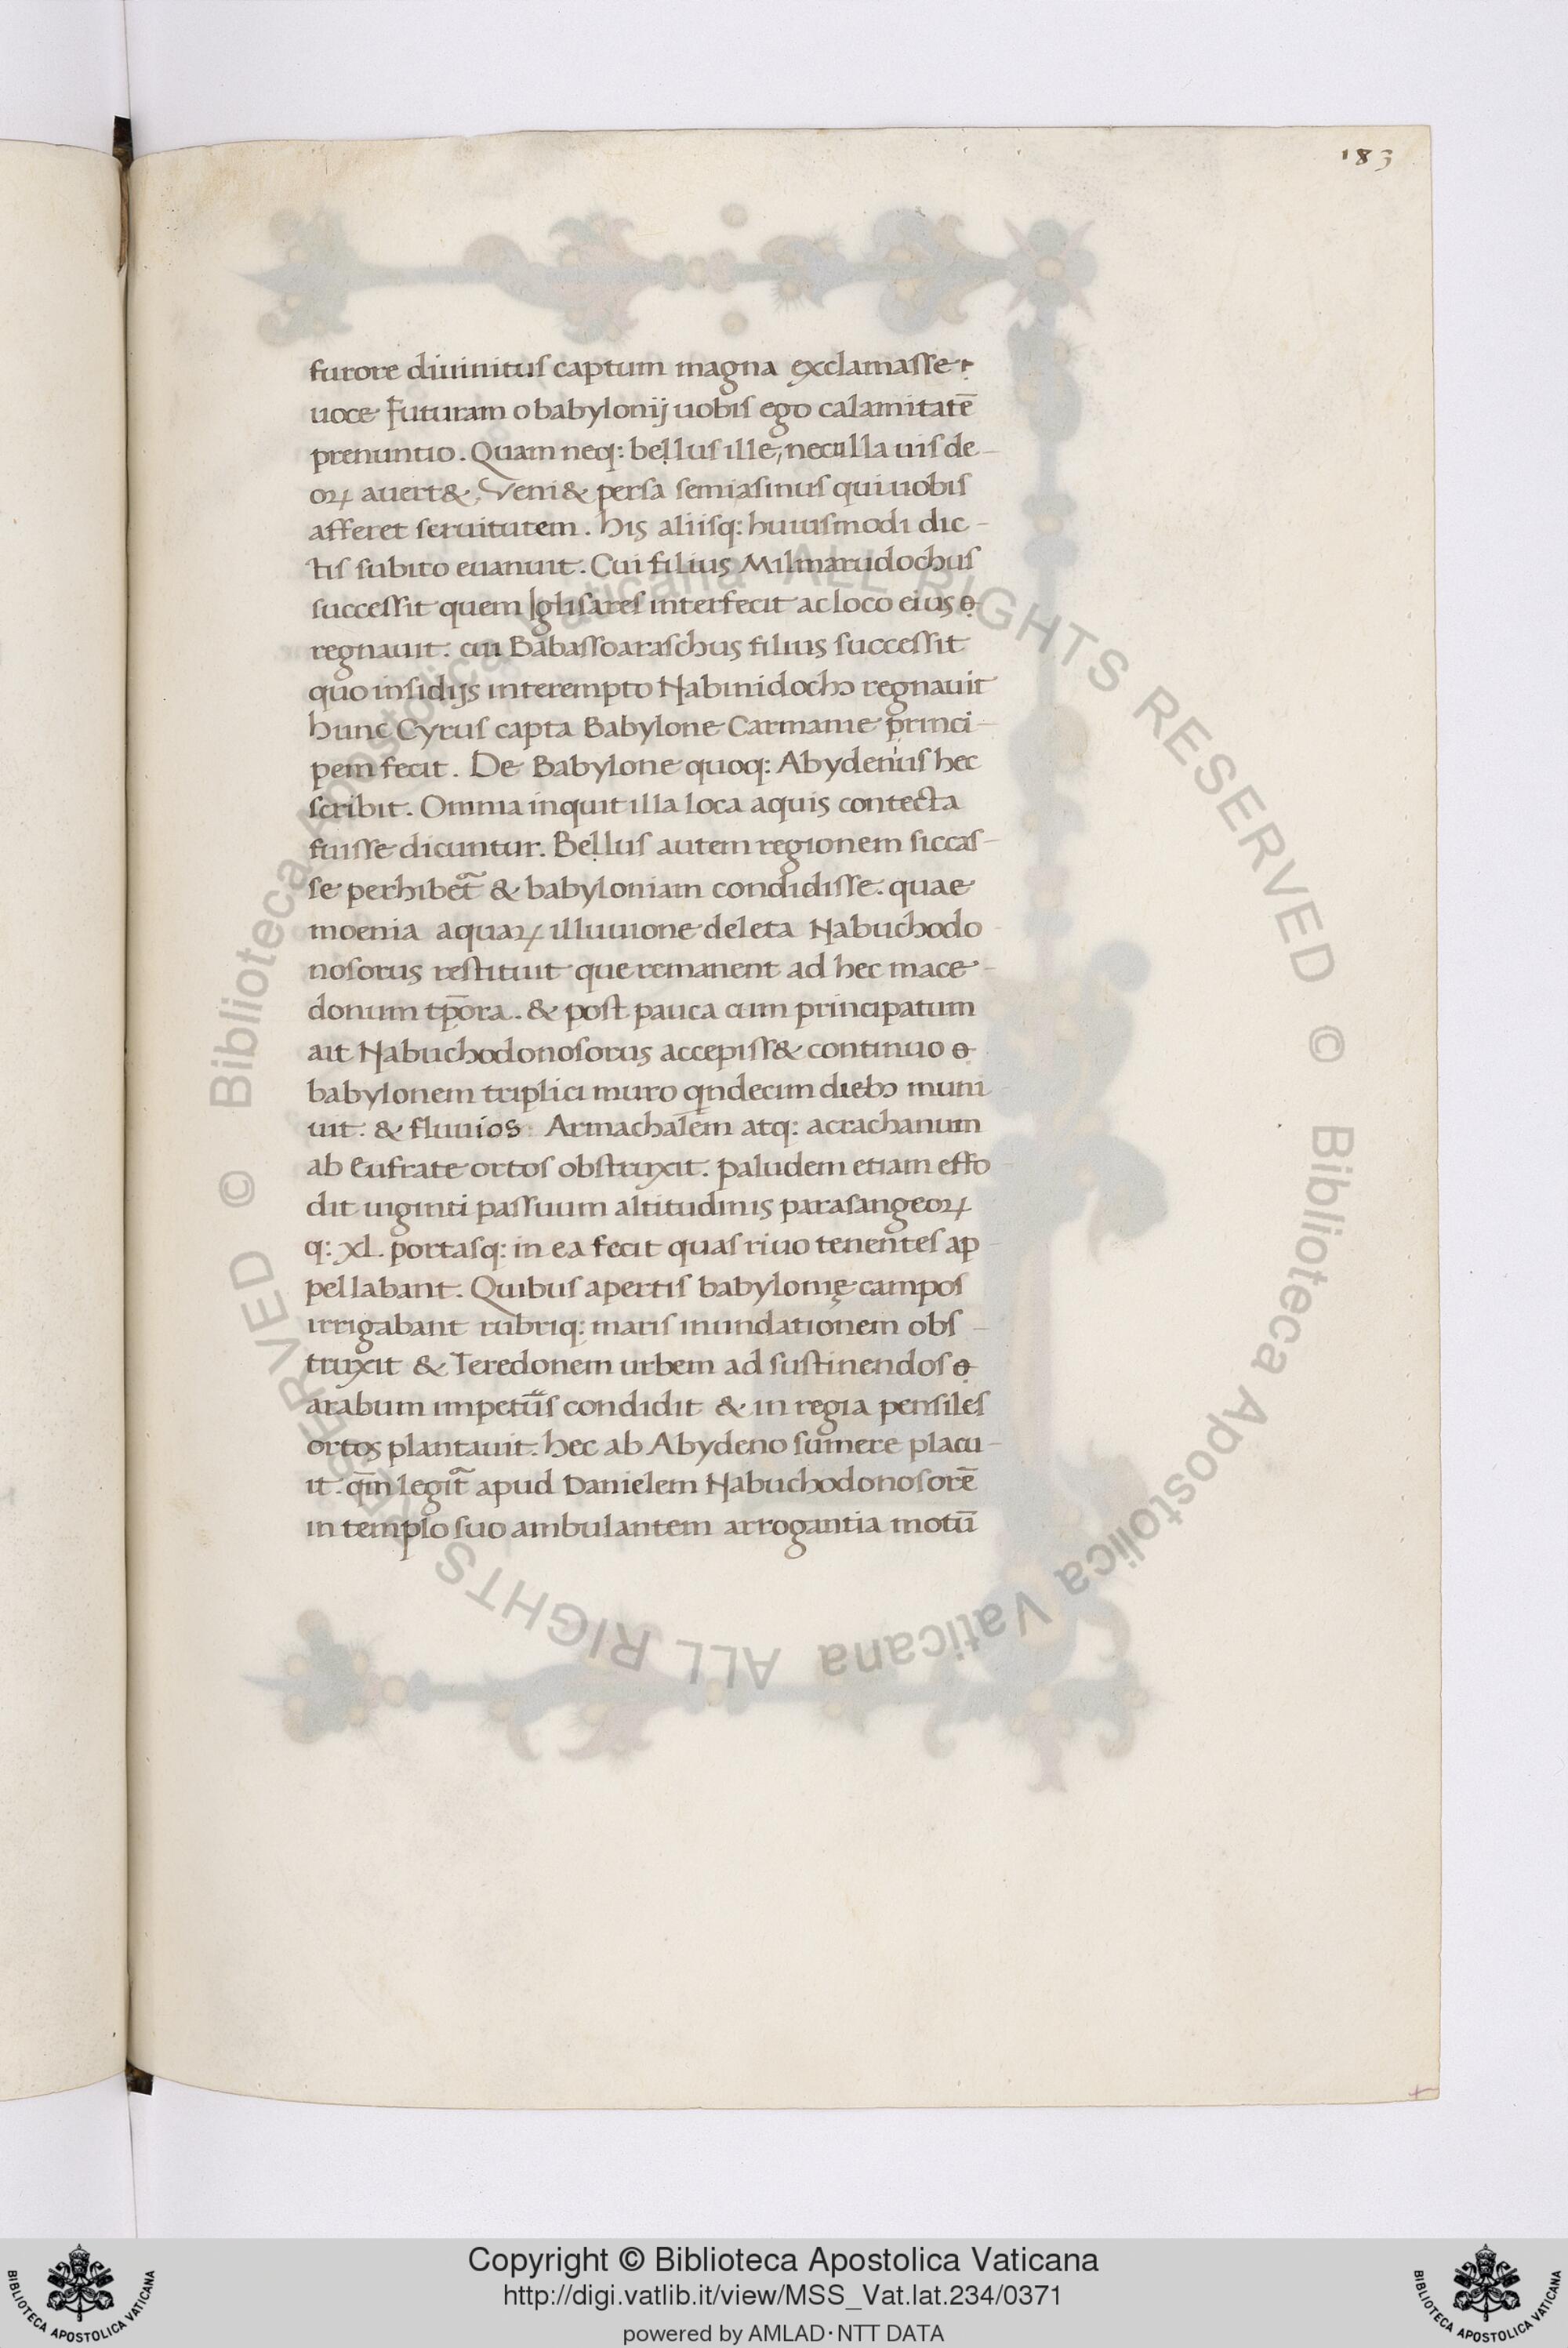 183
furore diuinitus captum magna exclamasse
uoce Futuram o babylonij uobis ego calamitatē
prenuntio. Quam neq: bellus ille, nec ulla uis de-
oꝝ auert&. Veni& persa semiasinus qui uobis
afferet seruitutem. his aliisq: huiusmodi dic-
tis subito euanuit. Cui filius Milmarudochus
successit quem Iglisares interfecit ac loco eius
regnauit. cui Babassoaraschus filius successit
quo insidijs interempto Nabinidocho regnauit
hunc Cyrus capta Babylone Carmanie princi-
pem fecit. De Babylone quoq: Abydenus hec
scribit. Omnia inquit illa loca aquis contecta
fuisse dicuntur. Bellus autem regionem siccas-
se perhibet᷑ & babyloniam condidisse. quae
moenia aquaꝝ illuuione deleta Nabuchodo
nosorus restituit que remanent ad hec mace-
donum tp̄ora. & post pauca cum principatum
ait Nabuchodonosorus accepiss& continuo
babylonem triplici muro qndecim diebꝰ muni
uit. & fluuios Armachalem atq: acrachanum
ab Eufrate ortos obstruxit. paludem etiam effo
dit uiginti passuum altitudinis parasangeoꝝ
q: xl. portasq: in ea fecit quas riuo tenentes ap-
pellabant. Quibus apertis babylonię campos
irrigabant rubriq: maris inundationem obs-
truxit & Teredonem urbem ad sustinendos
arabum impetus condidit & in regia pensiles
ortos plantauit. hec ab Abydeno sumere placu-
it. qm̄ legit᷑ apud Danielem Nabuchodonosorē
in templo suo ambulantem arrogantia motū
© Biblioteca Apostolica Vaticana ALL RIGHTS RESERVED © Biblioteca Apostolica Vaticana ALL RIGHTS RESERVED
BIBLIOTECA APOSTOLICA VATICANA
Copyright © Biblioteca Apostolica Vaticana
http://digi.vatlib.it/view/MSS_Vat.lat.234/0371
powered by AMLAD·NTT DATA
BIBLIOTECA APOSTOLICA VATICANA